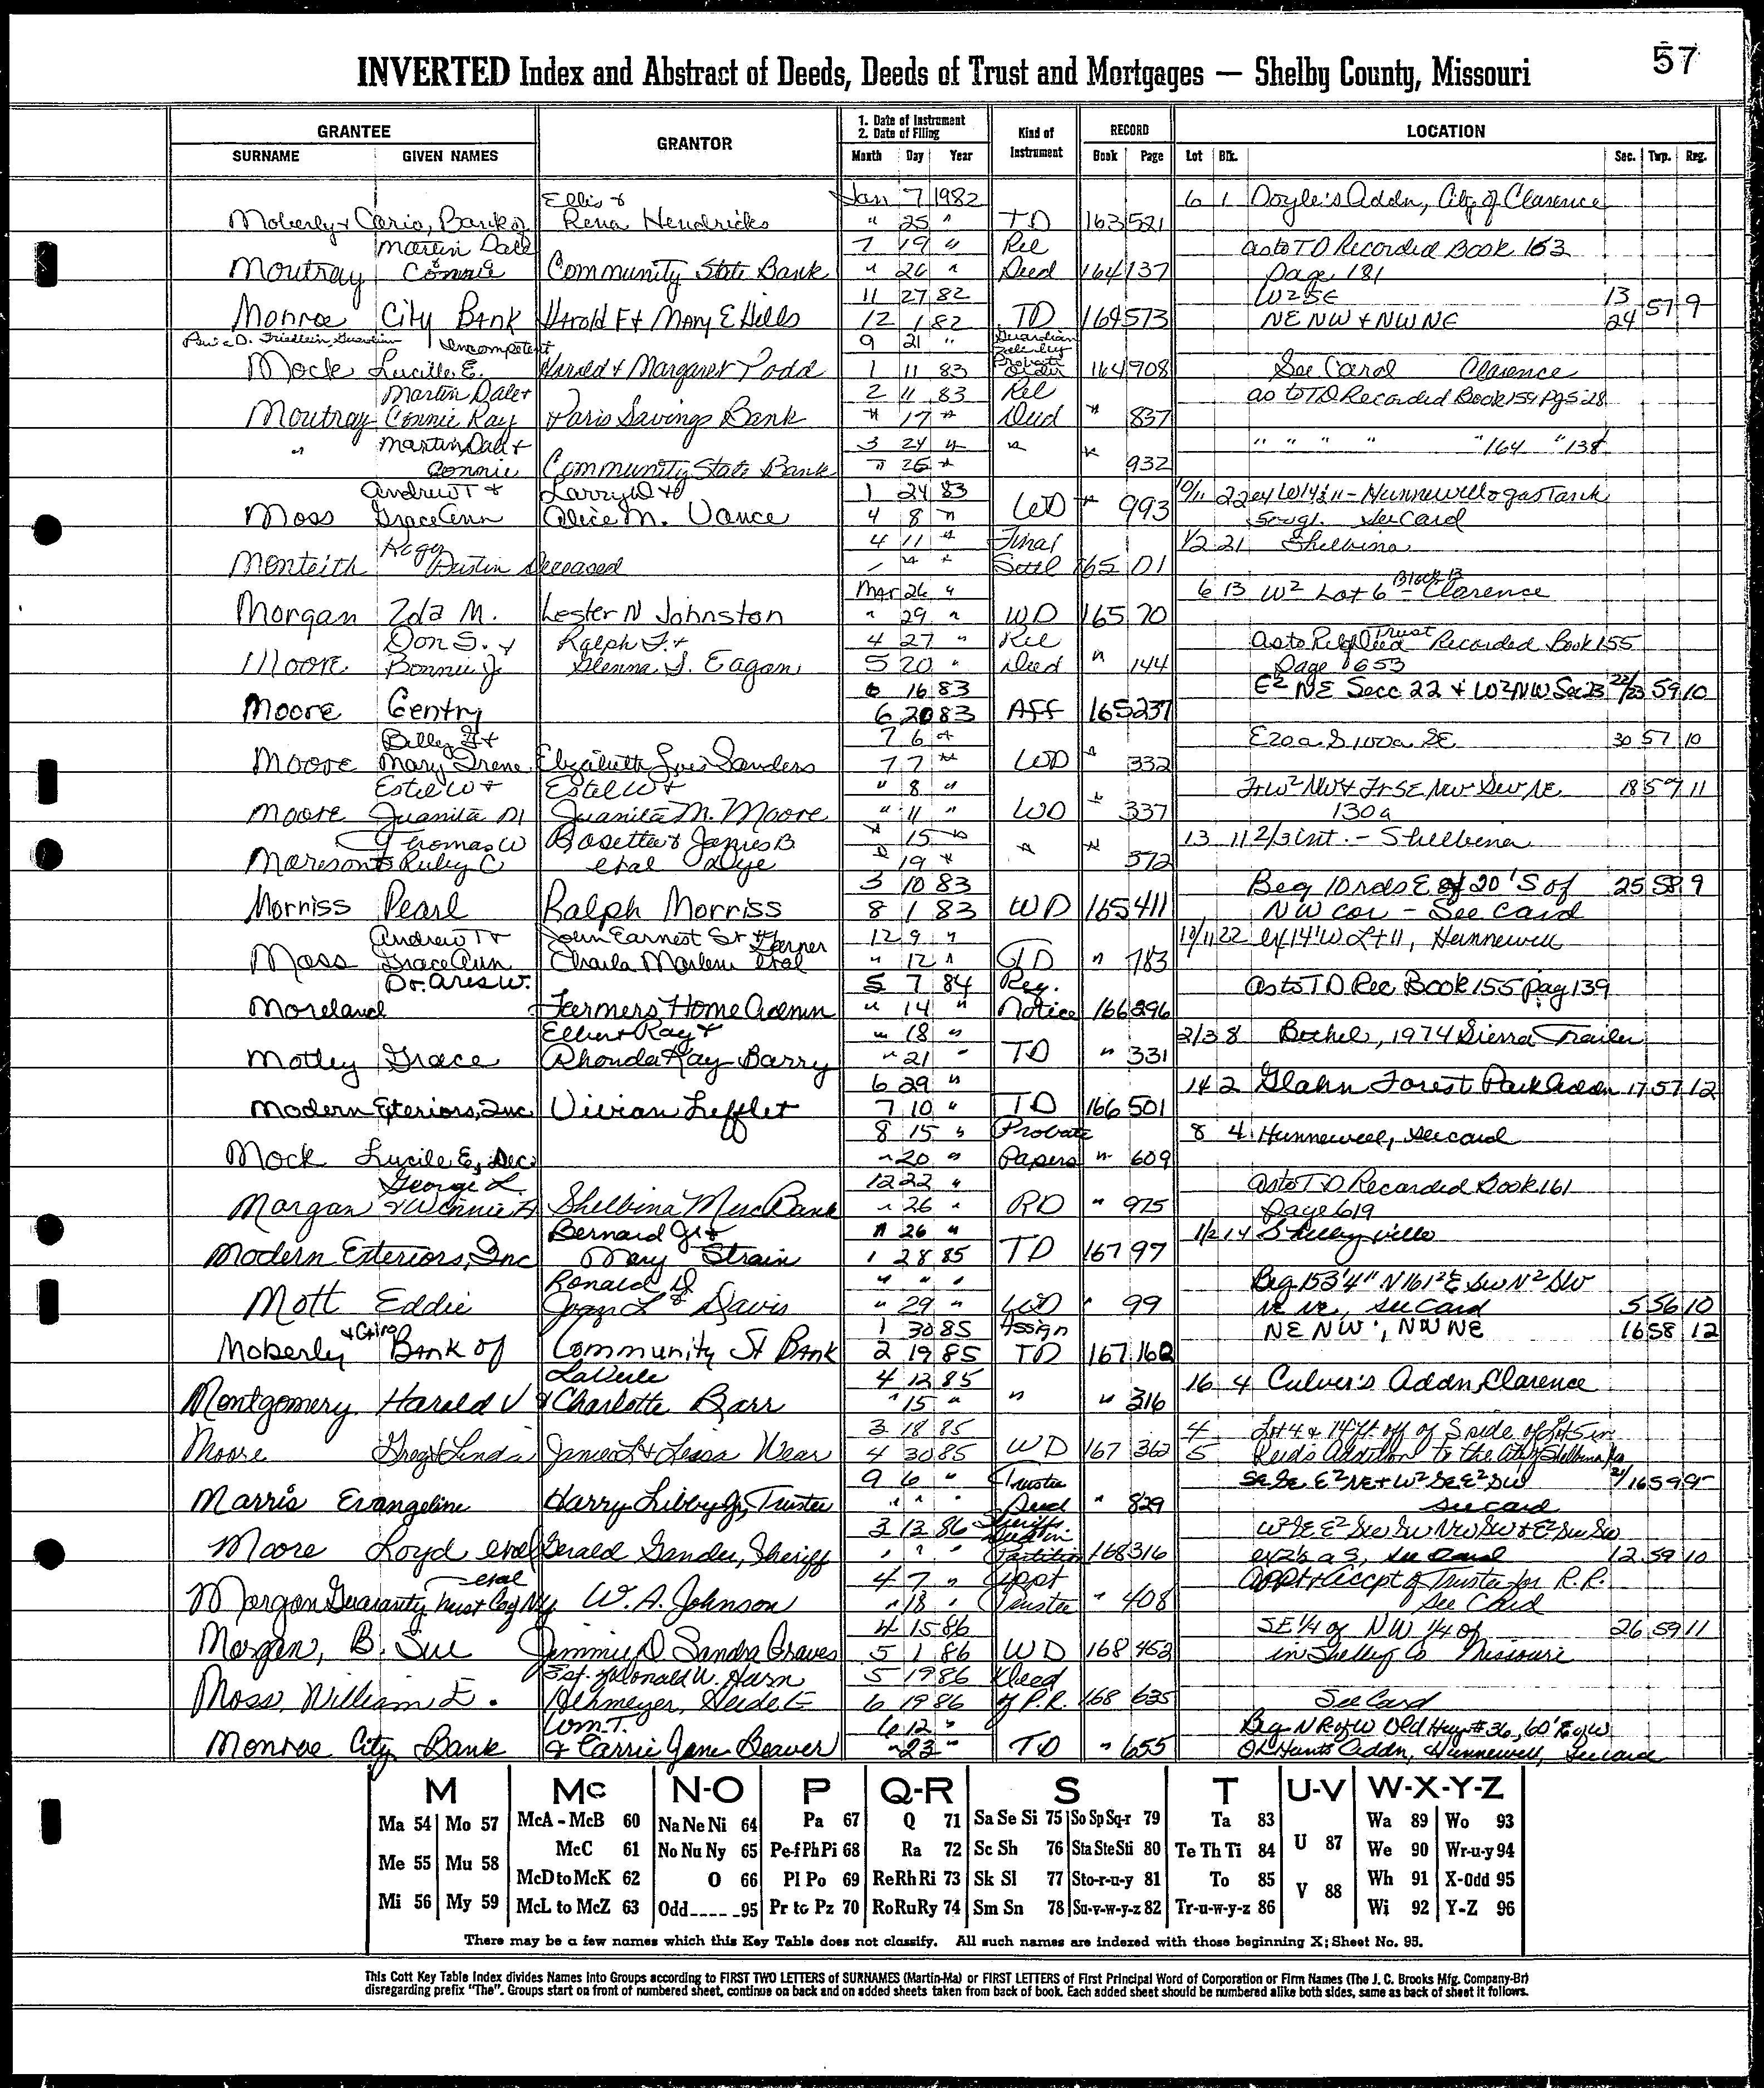 57
INVERTED Index and Abstract of Deeds, Deeds of Trust and Mortgages — Shelby County, Missouri
GRANTEE GRANTOR 1. Date of Instrument 2. Date of Filing Kind of Instrument RECORD LOCATION
SURNAME GIVEN NAMES Month Day Year Book Page Lot Blk. Sec. Twp. Rng.
Ellis & Jan 7 1982 6 1 Doyle's Addn, City of Clarence
Moberly & Cario, Bank of Rena Hendricks " 25 " TD 163 521
Martin Dale 7 19 " Rel as to TD Recorded Book 163
Moutray & Connie Community State Bank " 26 " Deed 164 137 page 181
11 27 82 W2 SE 13
Monroe City Bank Harold F & Mary E Hills 12 1 82 TD 164 573 NE NW & NW NE 24 57 9
Incompetent 9 21 " Guardian
Mock Lucille E. Harold & Margaret Todd 1 11 83 Probate 164 908 See Card Clarence
Martin Dale & 2 11 83 Rel as to TD Recorded Book 159 Pg 528
Moutray Connie Ray Paris Savings Bank " 17 " Deed " 837
" Martin Dale & 3 24 " " " " " " " 164 " 138
Connie Community State Bank " 25 " 932
Andrew T & Larry D & 1 24 83 10/11 22
Moss Grace Ann Alice M. Vance 4 8 " WD " 993 See Card
Roger 4 11 " Final 1/2 21 Shelbina
Monteith Dustin Deceased " " Settl 165 01
Mar 26 " 6 13 W2 Lot 6 Block 13 - Clarence
Morgan Zda M. Lester N Johnston " 29 " WD 165 70
Don S. & Ralph F. & 4 27 " Rel as to Rel of Deed Trust Recorded Book 155
Moore Bonnie J Glenna S. Eagan 5 20 " Deed " 144 Page 653
6 16 83 E2 NE Secc 22 & W2 NW Sec 23 22/23 59 10
Moore Gentry 6 20 83 Aff 165 237
Billy G & 7 6 " E 20 a S 100 a SE 30 57 10
Moore Mary Irene Elizabeth Lois Sanders 7 7 " WD " 332
Estel W & Estel W & " 8 " Fr W2 NW & Fr SE NW SW NE 18 59 11
Moore Juanita M Juanita M. Moore " 11 " WD " 337 130 a
Thomas W Rosetta & James B. " 15 " 13 11 2/3 int. - Shelbina
& Ruby C etal Dye " 19 " " " 372
3 10 83 Beg 10 rds E of 20' S of 25 58 9
Morriss Pearl Ralph Morriss 8 1 83 WD 165 411 NW cor - See Card
Andrew T & John Earnest Sr & 12 9 " 10/11 22 ex 14' W Lt 11, Hunnewell
Moss Grace Ann Charla Marlene Garner etal " 12 " TD " 783
Dr. Ares W. 5 7 84 Req. as to TD Rec Book 155 pag 139
Moreland Farmers Home Admin " 14 " Notice 166 296
Elbert Ray & " 18 " 2/3 8 Bethel, 1974 Sierra Trailer
Motley Grace Rhonda Kay Barry " 21 " TD " 331
6 29 " 14 2 Glahn Forest Park Addn 17 57 12
Modern Exteriors, Inc Vivian Lefflet 7 10 " TD 166 501
8 15 " Probate 8 4 Hunnewell, see card
Mock Lucile E, Dec. " 20 " Papers " 609
George L. 12 22 " as to TD Recorded Book 161
Morgan & Winnie A Shelbina Merc Bank " 26 " RD " 975 page 619
Bernard Jr & " 26 " 1/2 14 Shelbyville
Modern Exteriors, Inc Mary Strain 1 28 85 TD 167 97
Ronald D & " " " Beg 153'4" N 161 2 E SW N2 SW
Mott Eddie Joan L Davis " 29 " WD " 99 NE NE, see Card 5 56 10
& Cairo 1 30 85 Assign NE NW, NW NE 16 58 12
Moberly Bank of Community St Bank 2 19 85 TD 167 162
LaVerle 4 12 85 16 4 Culver's Addn, Clarence
Montgomery Harold V & Charlotte Barr " 15 " " " 316
3 18 85 4 Lot 4 & 14 ft off of S side of Lot 5 in
Moore Greg & Linda James L & Lessa Wear 4 30 85 WD 167 362 5 Reid's Addition to the City of Shelbina
9 6 " Trustee SE SE E2 NE & W2 SE E2 SW 21/16 59 9
Morris Evangeline Harry Libby Jr, Trustee " " " Deed " 829 see card
3 13 86 Sheriffs W2 SE E2 SW SW NW SW & E2 SW SW
Moore Loyd etal Gerald Gander, Sheriff " " " Partition 168 316 see Card 12 59 10
etal 4 7 " Appt Appt & Accpt of Trustee for R.R.
Morgan Guaranty Trust Co of NY W. A. Johnson " 18 " Trustee " 408 see Card
4 15 86 SE 1/4 of NW 1/4 of 26 59 11
Morgan, B. Sue Jimmie D Sandra Graves 5 1 86 WD 168 453 in Shelby Co Missouri
Est. of Donald W. Hasn 5 19 86 Deed
Moss, William E. Hehmeyer, Heide E 6 19 86 of P.R. 168 635 See Card
Wm. T. 6 12 " Beg N R of W Old Hwy #36, 60' E of W
Monroe City Bank & Carrie Jane Beaver " 23 " TD " 655 Ol Hunts Addn, Hunnewell, see card
M Mc N-O P Q-R S T U-V W-X-Y-Z
Ma 54 Mo 57 McA - McB 60 Na Ne Ni 64 Pa 67 Q 71 Sa Se Si 75 So Sp Sq-r 79 Ta 83 U 87 Wa 89 Wo 93
Me 55 Mu 58 McC 61 No Nu Ny 65 Pe-f Ph Pi 68 Ra 72 Sc Sh 76 Sta Ste Sti 80 Te Th Ti 84 V 88 We 90 Wr-u-y 94
McD to McK 62 O 66 Pl Po 69 Re Rh Ri 73 Sk Sl 77 Sto-r-u-y 81 To 85 Wh 91 X-Odd 95
Mi 56 My 59 McL to McZ 63 Odd---- -95 Pr to Pz 70 Ro Ru Ry 74 Sm Sn 78 Su-v-w-y-z 82 Tr-u-w-y-z 86 Wi 92 Y-Z 96
There may be a few names which this Key Table does not classify. All such names are indexed with those beginning X; Sheet No. 95.
This Cott Key Table Index divides Names into Groups according to FIRST TWO LETTERS of SURNAMES (Martin-Ma) or FIRST LETTERS of First Principal Word of Corporation or Firm Names (The J. C. Brooks Mfg. Company-Br)
disregarding prefix "The". Groups start on front of numbered sheet, continue on back and on added sheets taken from back of book. Each added sheet should be numbered alike both sides, same as back of sheet it follows.